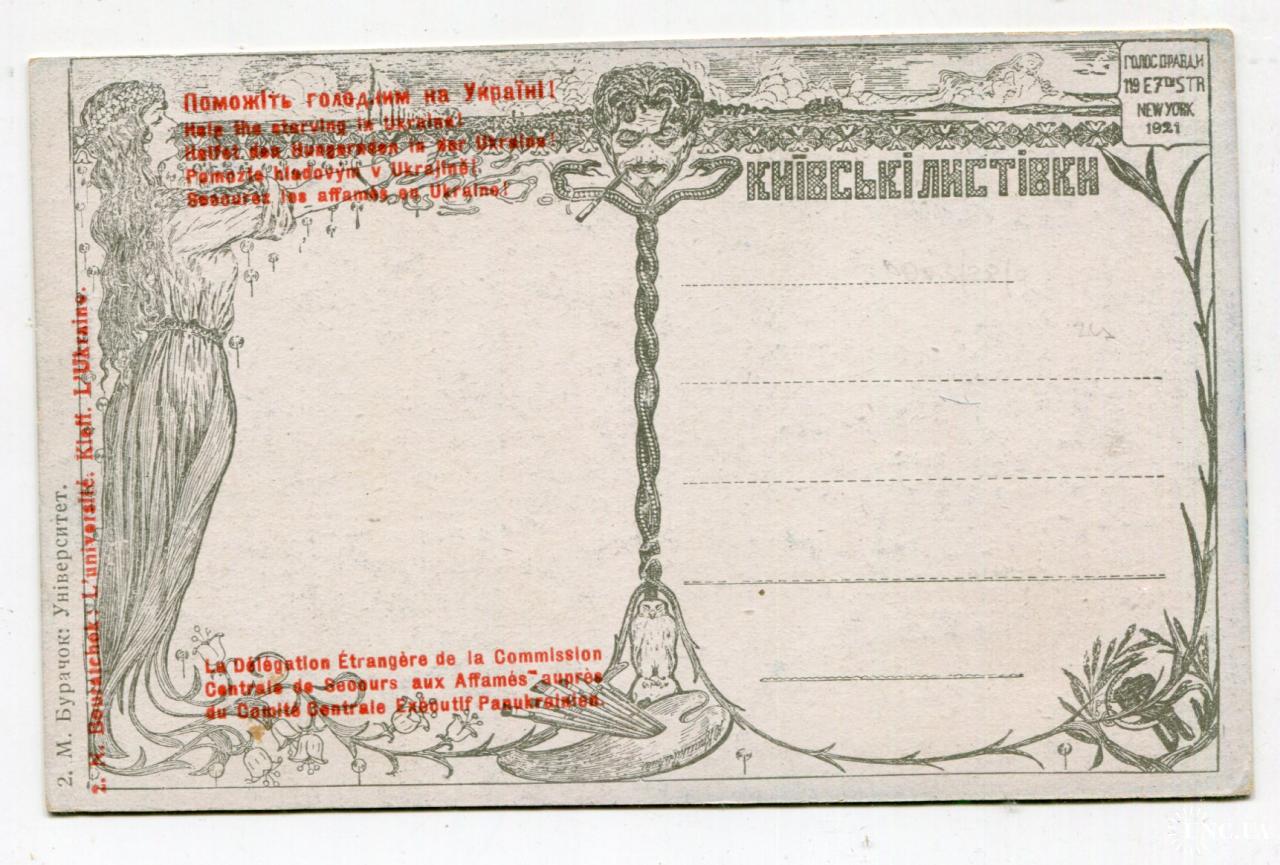 Поможіть голодним на Україні!
Help the starving in Ukraine!
Helfet den Hungernden in der Ukraine!
Pomozte hladovým v Ukrajině!
Secourez les affamés en Ukraine!
ГОЛОС ПРАВДИ
119 E 7TH STR
NEW YORK
1921
КИЇВСЬКІ ЛИСТІВКИ
La Délégation Étrangère de la Commission
Centrale de Secours aux Affamés auprès
du Comité Centrale Exécutif Panukrainien.
2. М. Бурачок: Університет.
2. M. Bouratchok: L'université. Kieff. L'Ukraine.